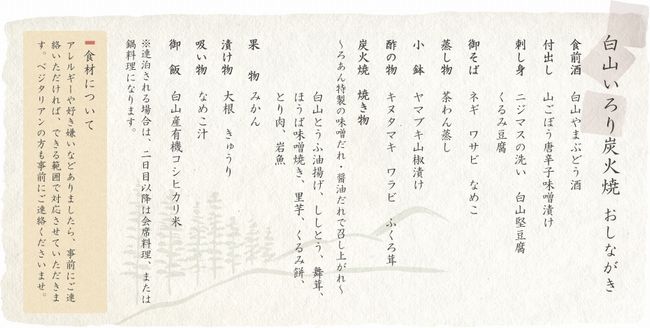 白山いろり炭火焼 おしながき
食前酒 白山やまぶどう酒
付出し 山ごぼう唐辛子味噌漬け
刺し身 ニジマスの洗い 白山堅豆腐
くるみ豆腐
御そば ネギ ワサビ なめこ
蒸し物 茶わん蒸し
小 鉢 ヤマブキ山椒漬け
酢の物 キヌタマキ ワラビ ふくろ茸
炭火焼 焼き物
～ろあん特製の味噌だれ・醤油だれで召し上がれ～
白山とうふ油揚げ、ししとう、舞茸、
ほうば味噌焼き、里芋、くるみ餅、
とり肉、岩魚
果 物 みかん
漬け物 大根 きゅうり
吸い物 なめこ汁
御 飯 白山産有機コシヒカリ米
※連泊される場合は、二日目以降は会席料理、または
鍋料理になります。
食材について
アレルギーや好き嫌いなどありましたら、事前にご連
絡いただければ、できる範囲で対応させていただきま
す。ベジタリアンの方も事前にご連絡くださいませ。